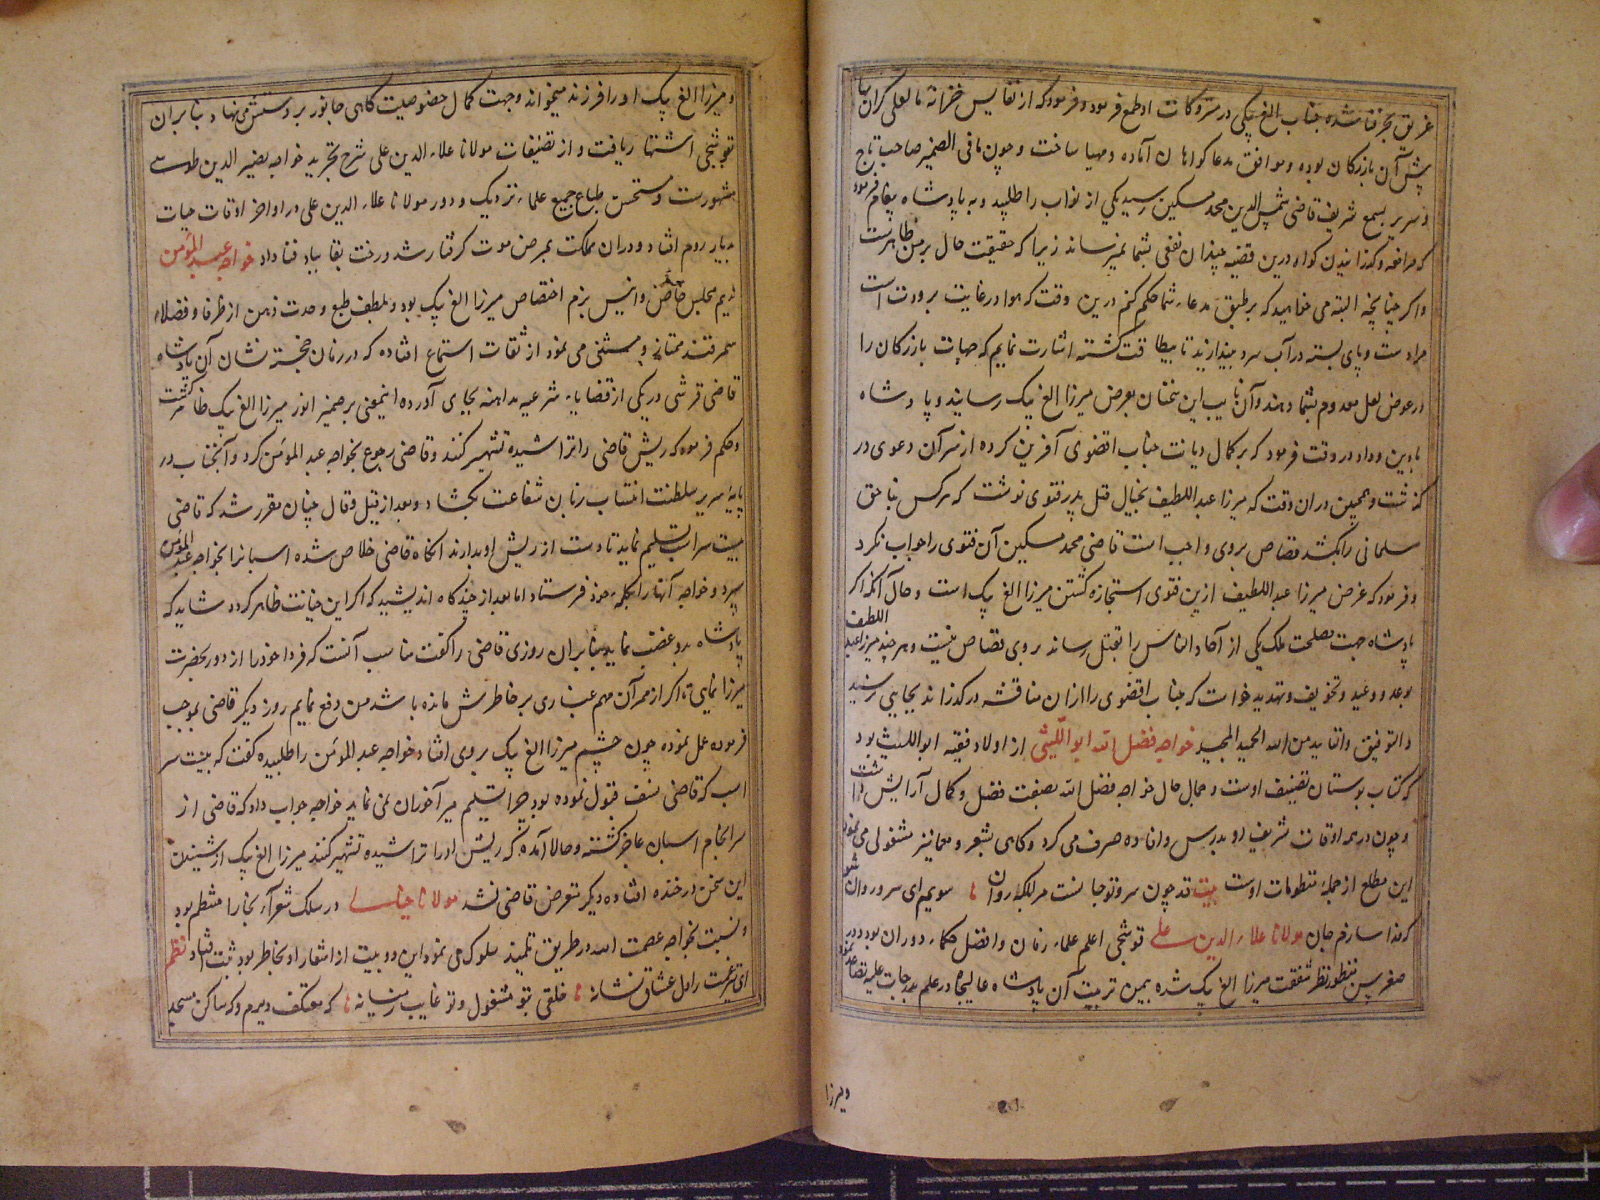 غریق بحر فنا شده جناب الغ بیکی در متروکات او طمع فرمود و فرمود که از نفایس خزانه ما لعلی گران بها
پیش آن بازرکان بوده و موافق مدعا کواهان آماده و مهیا ساخت و چون ما فی الضمیر صاحب تاج
و سریر بسمع شریف قاضی شمس الدین محمد مسکین رسید یکی از نواب را طلبید و به پادشاه پیغام فرمود
که مرافعه و کذرانیدن کواه درین قضیه چندان نفعی بشما نمیرساند زیرا که حقیقت حال بر من ظاهرست
و اکر چنانچه البته می خواهید که بر طبق مدعاء شما حکم کنم درین وقت که هوا در غایت برودت است
مرا دست و پای بسته در آب سرد بیندازید تا بیطاقت کشته اشارت نمایم که جهات بازرکان را
در عوض لعل معدوم بشما دهند و آن نایب این سخنان بعرض میرزا الغ بیک رسانید و پادشاه
با دین و داد در وقت فرمود که بر کمال دیانت جناب اقضوی آفرین کرده از سر آن دعوی در
کذشت و همچنین دران وقت که میرزا عبد اللطیف بخیال قتل پدر فتوی نوشت که هر کس بنا حق
مسلمانی را بکشد قصاص بر وی واجب است قاضی محمد مسکین آن فتوی را جواب نکرد
و فرمود که غرض میرزا عبد اللطیف ازین فتوی استجازه کشتن میرزا الغ بیک است و حال آنکه اکر
پادشاه جهت مصلحت ملک یکی از آحاد الناس را بقتل رساند بر وی قصاص نیست و هر چند میرزا عبد اللطیف
بوعد و وعید و تخویف و تهدید خواست که جناب اقضوی را ازان مناقشه در کذراند بجایی نرسید
و التوفیق و التایید من الله الحمید المجید خواجه فضل الله ابو اللیثی از اولاد فقیه ابو اللیث بود
که کتاب بوستان تصنیف اوست و جمال حال خواجه فضل الله بصفت فضل و کمال آرایش داشت
و چون در همه اوقات شریف او بدرس و افاده صرف می کرد و کاهی بشعر و معما نیز مشغولی می نمود
این مطلع از جمله منظومات اوست بیت قد چون سرو تو جانست مر لکه روان شود سویم ای سرو روان
کر فدا سازم جان مولانا علاء الدین علی قوشجی اعلم علماء زمان و افضل حکماء دوران بود در
صغر سن منظور نظر شفقت میرزا الغ بیک شده بیمن تربیت آن پادشاه عالیجاه در علم بدرجات علیه تصاعد نمود
و میرزا
و میرزا الغ بیک او را فرزند میخواند و جهت کمال خصوصیت کاهی جانور بر دستش می نهاد و بنابران
بقوشجی اشتهار یافت و از تصنیفات مولانا علاء الدین علی شرح تجرید خواجه نصیر الدین طوسی
مشهورست و مستحسن طباع جمیع علماء نزدیک و دور مولانا علاء الدین علی در اواخر اوقات حیات
بدیار روم افتاد و دران مملکت بمرض موت کرفتار شد و رخت بقا بباد فنا داد خواجه عبد المؤمن
ندیم مجلس خاص و انیس بزم اختصاص میرزا الغ بیک بود و بلطف طبع و حدت ذهن از ظرفا و فضلاء
سمرقند ممتاز و مستثنی می نمود از ثقات استماع افتاده که در زمان خجسته نشان آن پادشاه
قاضی قرشی در یکی از قضایاء شرعیه مداهنه بجای آورده اینمعنی بر ضمیر انور میرزا الغ بیک ظاهر کشت
و حکم فرمود که ریش قاضی را تراشیده تشهیر کنند و قاضی رجوع بخواجه عبد المؤمن کرد و آنجناب در
پایه سریر سلطنت انتساب زبان شفاعت بکشاد و بعد از قیل و قال چنان مقرر شد که قاضی
بیست سر اسب تسلیم نماید تا دست از ریش او بدارند آنکاه قاضی خلاص شده اسبانرا بخواجه عبد المؤمن
سپرد و خواجه آنها را بکله خود فرستاد اما بعد از چند کاه اندیشید که اکر این خیانت ظاهر کردد شاید که
پادشاه بدو غضب نماید بنابران روزی قاضی را کفت مناسب آنست که فردا خود را از دور بحضرت
میرزا نمایی تا اکر از ممر آن مهم غباری بر خاطرش مانده باشد من دفع نمایم روز دیکر قاضی بموجب
فرموده عمل نموده چون چشم میرزا الغ بیک بر وی افتاد خواجه عبد المؤمن را طلبیده کفت که بیست سر
اسب که قاضی متقبل نموده بود چرا تسلیم میر آخوران نمی نماید خواجه جواب داد که قاضی از
سرانجام اسبان عاجز کشته و حالا آمده که ریش او را تراشیده تشهیر کنند میرزا الغ بیک از شنیدن
این سخن در خنده افتاده دیکر متعرض قاضی نشد مولانا خیالی در سلک شعراء بخارا منتظم بود
و نسبت بخواجه عصمت الله در طریق تلمیذ سلوک می نمود این دو بیت از اشعار او بخاطر بود ثبت افتاد نظم
ای تیر غمت را دل عشاق نشانه خلقی بتو مشغول و تو غایب ز میانه که معتکف دیرم و که ساکن مسجد